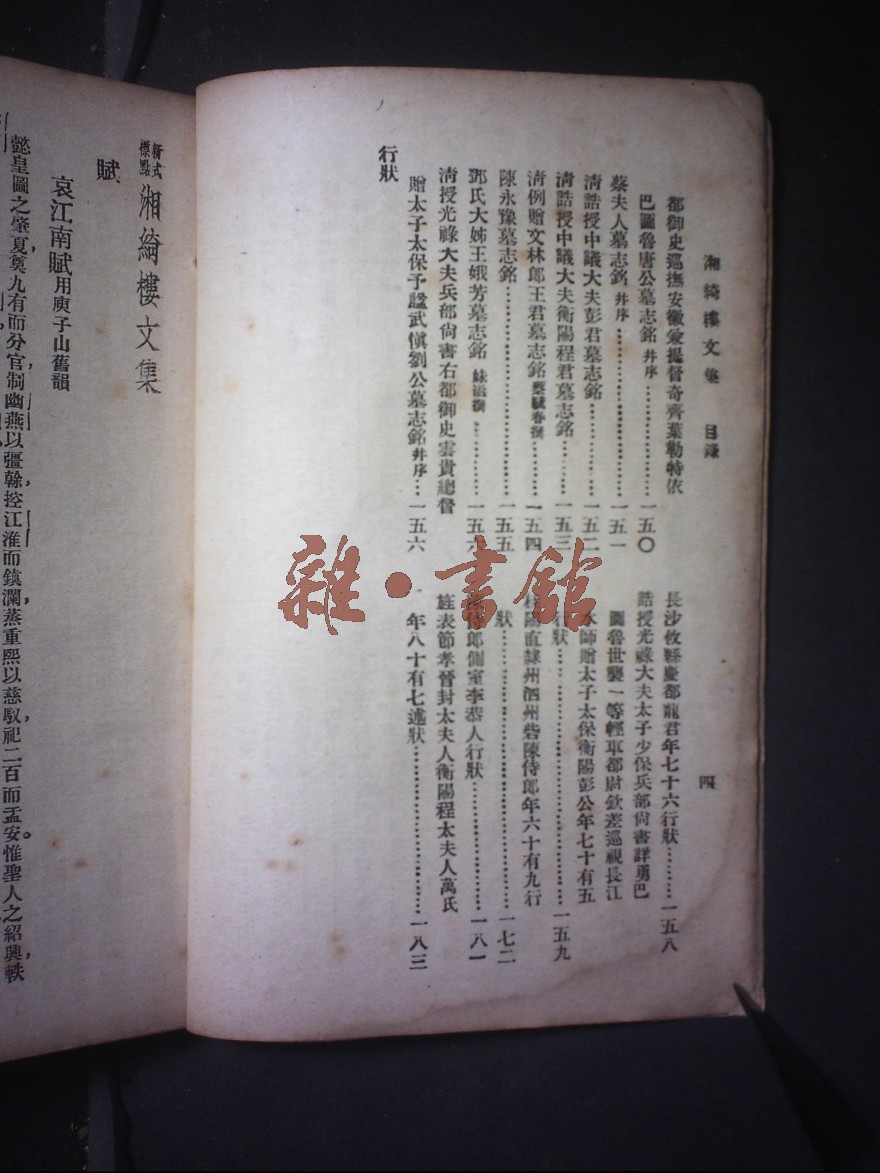 湘綺樓文集　目錄
四
都御史巡撫安徽兼提督奇齊葉勒特依
巴圖魯唐公墓志銘 幷序…………一五〇
蔡夫人墓志銘 幷序…………一五一
清誥授中議大夫彭君墓志銘…………一五二
清誥授中議大夫衡陽程君墓志銘…………一五三
清例贈文林郎王君墓志銘 蔡毓春撰…………一五四
陳永豫墓志銘…………一五五
鄧氏大姊王娥芳墓志銘 妹滋撰…………一五六
清授光祿大夫兵部尚書右都御史雲貴總督
贈太子太保予諡武愼劉公墓志銘 幷序…一五六
行狀
長沙攸縣慶都龍君年七十六行狀…………一五八
誥授光祿大夫太子少保兵部尚書詳勇巴
圖魯世襲一等輕車都尉欽差巡視長江
水師贈太子太保衡陽彭公年七十有五
行狀…………一五九
桂陽直隸州泗州砦陳侍郎年六十有九行
狀…………一七二
侍郎側室李恭人行狀…………一八一
旌表節孝晉封太夫人衡陽程太夫人萬氏
年八十有七述狀…………一八三
新式標點 湘綺樓文集
賦
哀江南賦 用庾子山舊韻
懿皇圖之肇夏奠九有而分官制幽燕以彊榦控江淮而鎮瀾蒸重熙以慈馭祀二百而盂安惟聖人之紹興軼
雜·書館